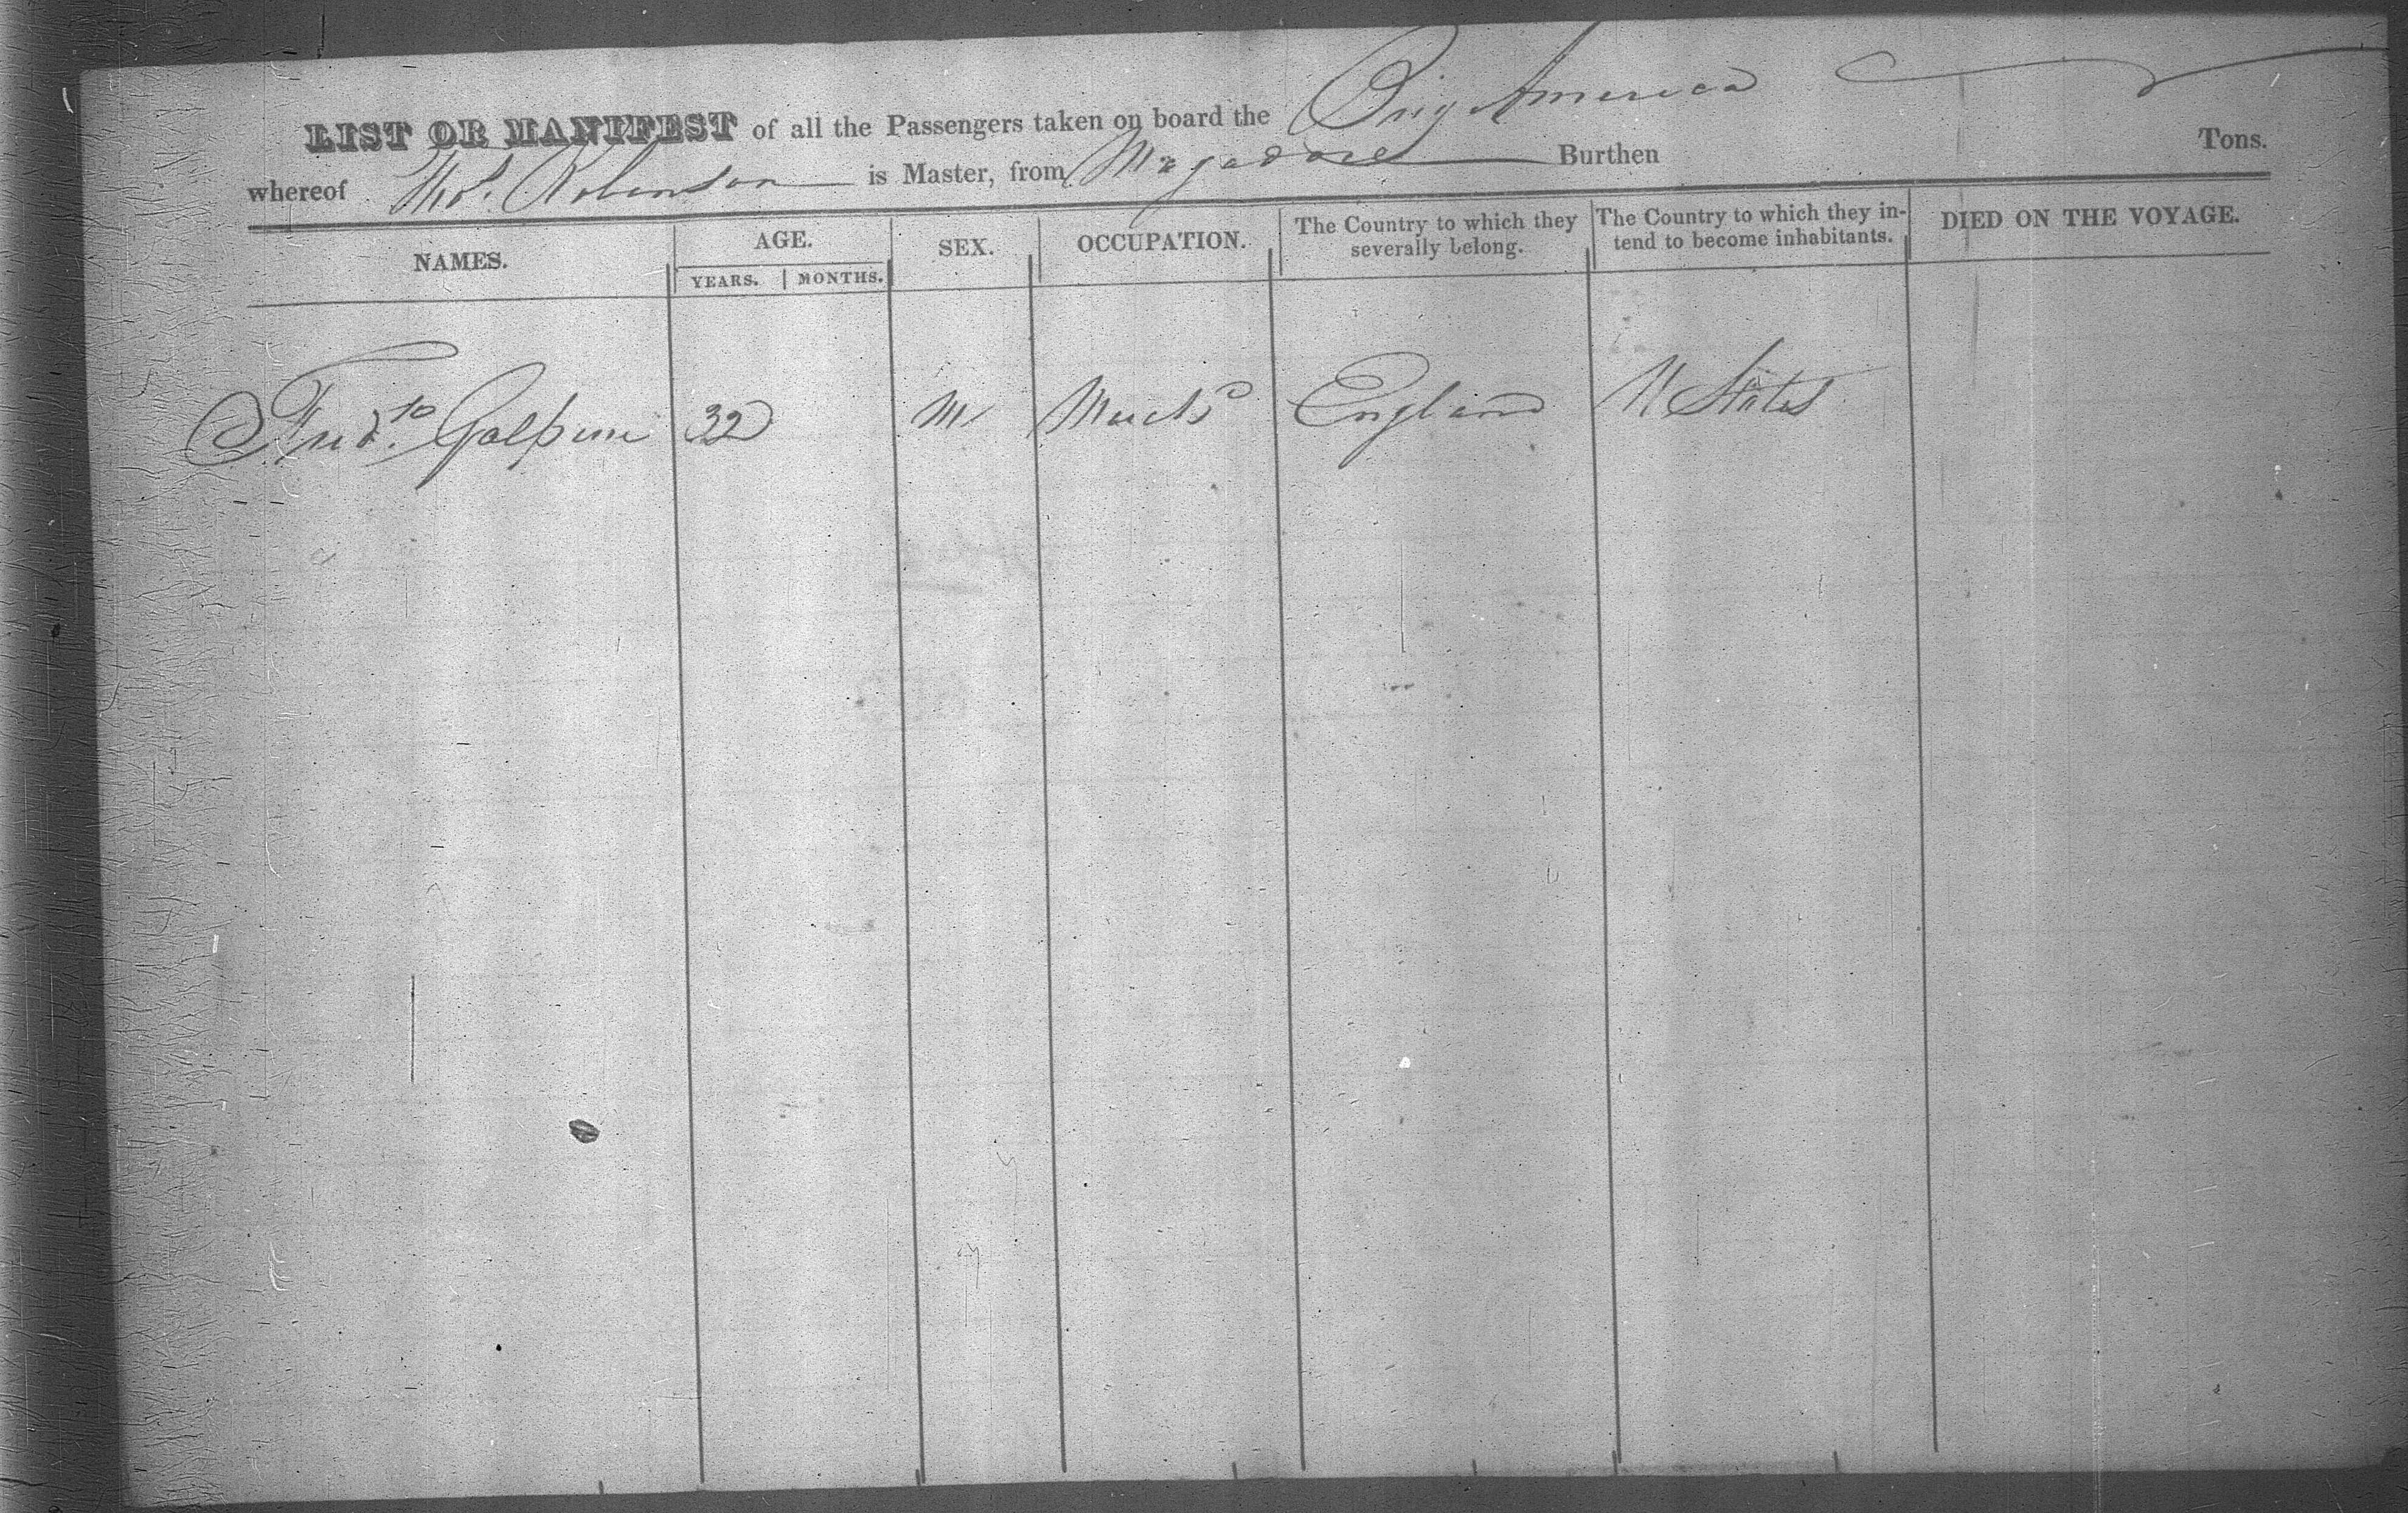 LIST OR MANIFEST of all the Passengers taken on board the Brig America
whereof Thos. Robinson is Master, from Magadore Burthen Tons.
NAMES. AGE. YEARS. MONTHS. SEX. OCCUPATION. The Country to which they severally belong. The Country to which they intend to become inhabitants. DIED ON THE VOYAGE.
Fredk. Galpine 32 M Mercht England U States